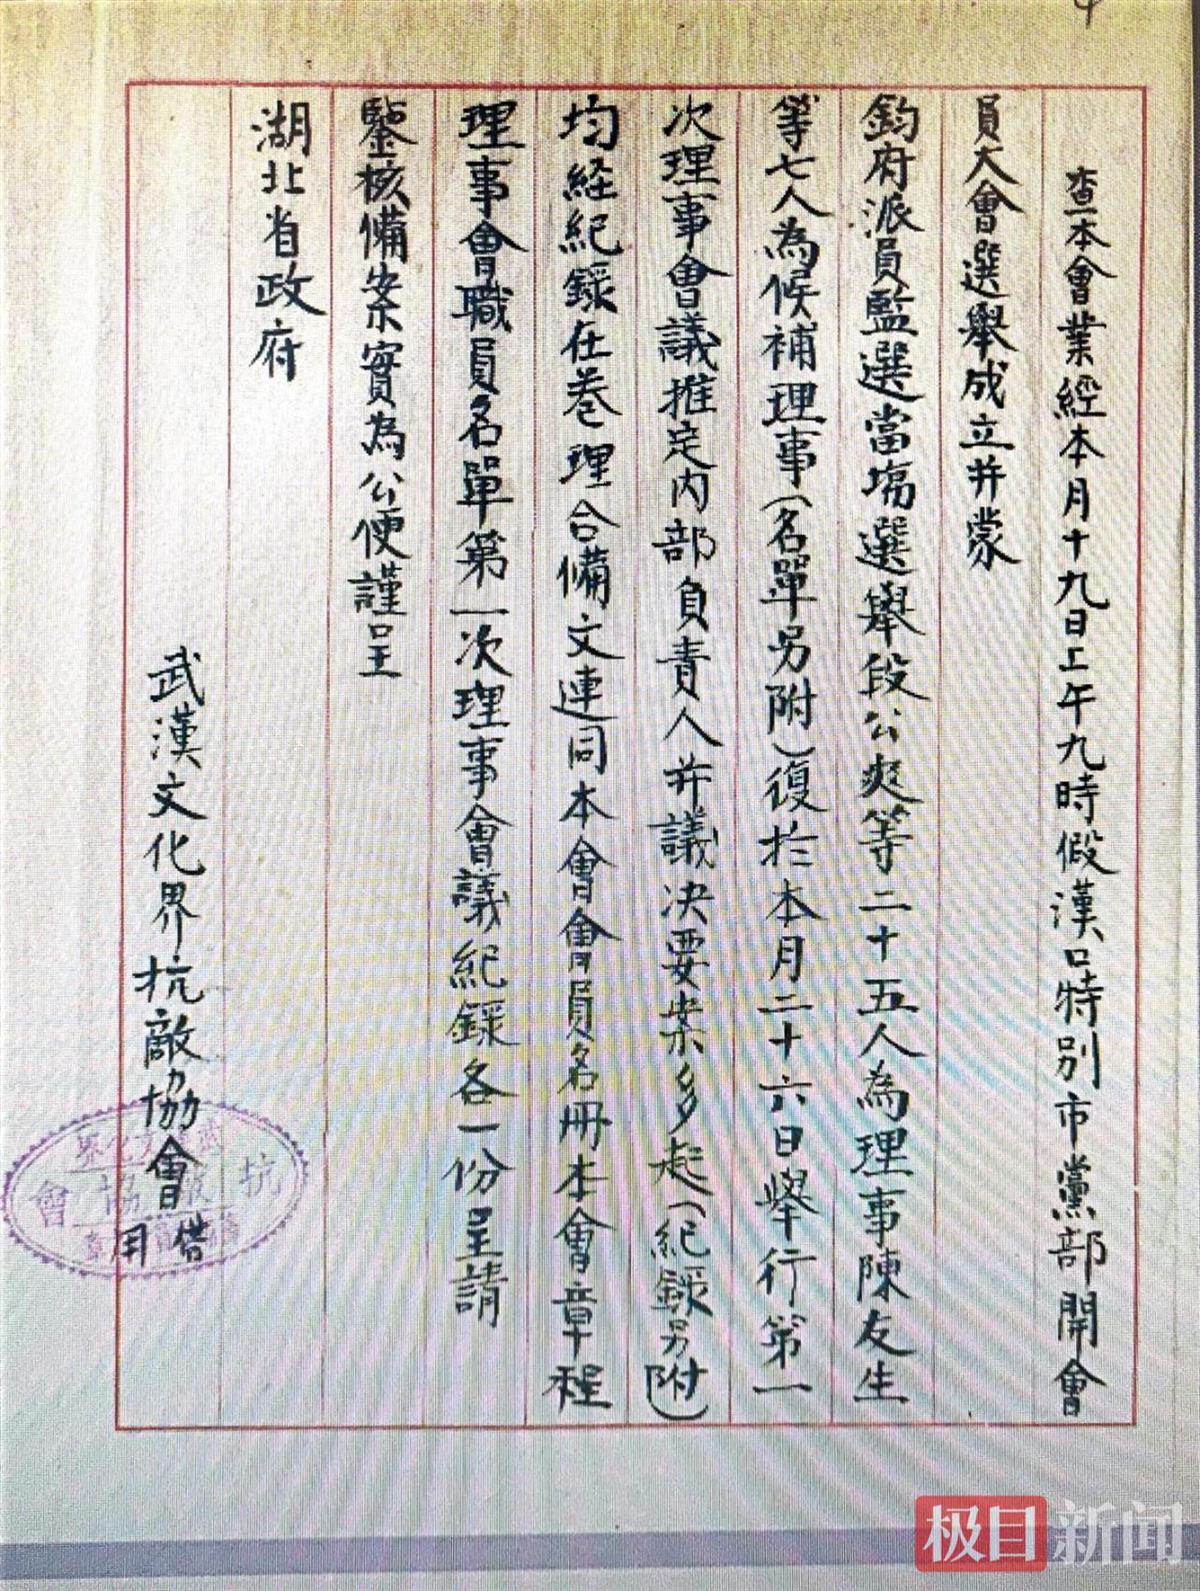 查本會業經本月十九日上午九時假漢口特别市黨部開會
員大會選舉成立并蒙
鈞府派員監選當塲選舉段公爽等二十五人為理事陳友生
等七人為候補理事(名單另附)復於本月二十六日舉行第一
次理事會議推定内部負責人并議决要案多起(紀録另附)
均経紀録在卷理合備文連同本會會員名冊本會章程
理事會職員名單第一次理事會議紀録各一份呈請
鑒核備案實為公便謹呈
湖北省政府
武漢文化界抗敵協會
借用
抗
協
會
界
极目新闻